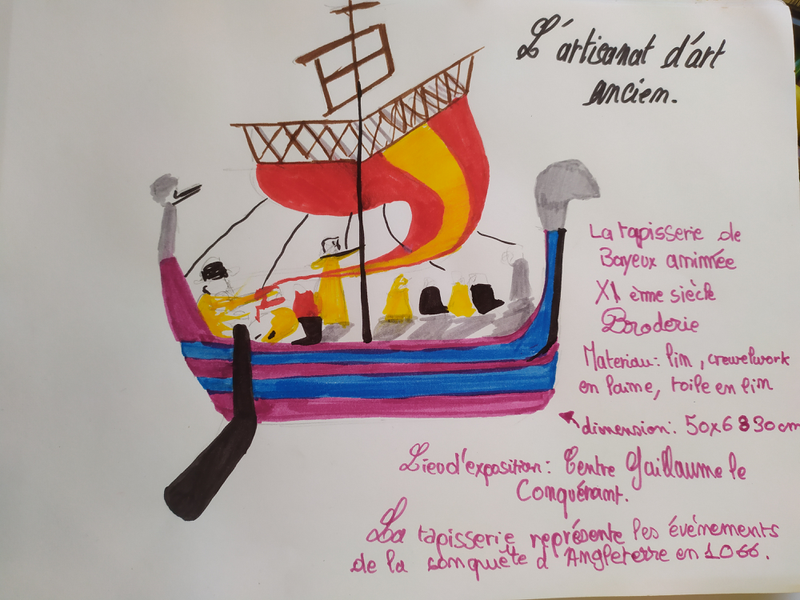 L'artisanat d'art
ancien.
La tapisserie de
Bayeux animée
XI ème siècle
Broderie
Materiau: lin, crewelwork
en laine, toile en lin
dimension: 50x6 830cm
Lieu d'exposition: Centre Guillaume le
Conquérant.
La tapisserie représente les événements
de la conquête d'Angleterre en 1066.